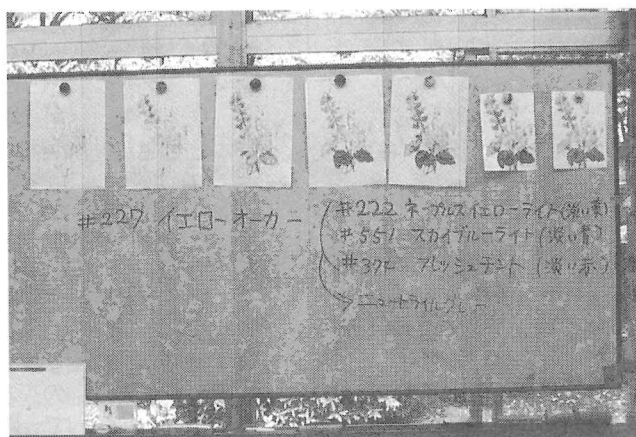 #227 イエローオーカー
#222 ネープルスイエローライト(淡い黄)
#551 スカイブルーライト(淡い青)
#374 フレッシュチント(淡い赤)
ニュートラルグレー